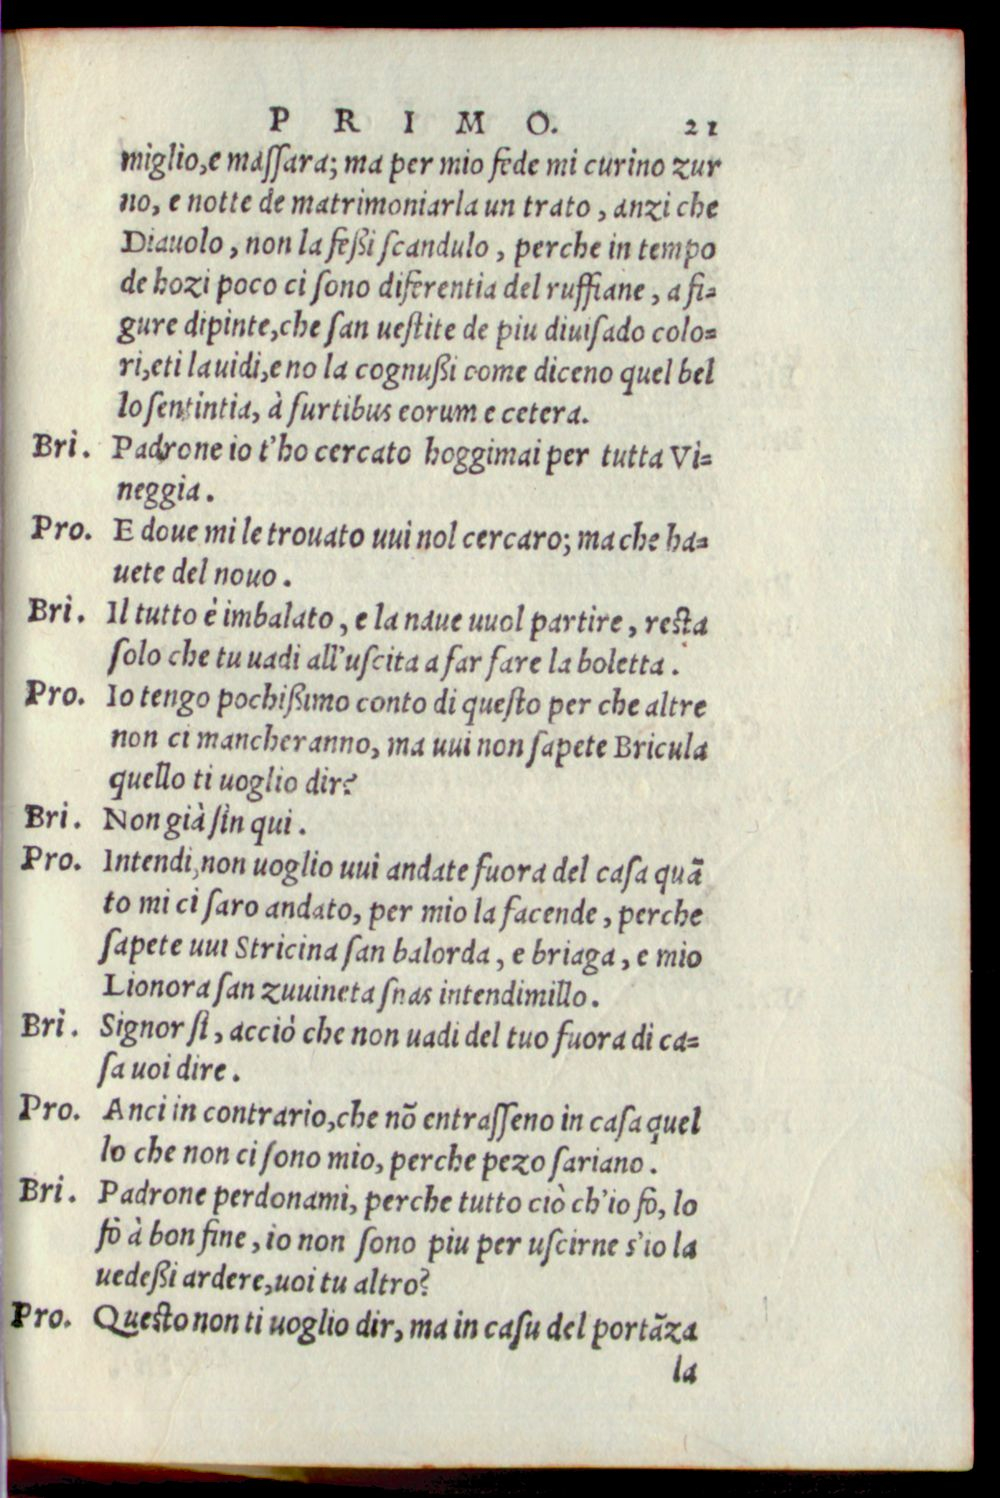 PRIMO. 21
miglio,e maſſara; ma per mio fede mi curino zur
no, e notte de matrimoniarla un trato , anzi che
Diauolo , non la feßi ſcandulo , perche in tempo
de hozi poco ci ſono diferentia del ruffiane , a fi=
gure dipinte,che ſan ueſtite de piu diuiſado colo=
ri,eti lauidi,e no la cognußi come diceno quel bel
lo ſentintia, à furtibus eorum e cetera.
Bri. Padrone io t'ho cercato hoggimai per tutta Vi=
neggia .
Pro. E doue mi le trouato uui nol cercaro; ma che ha=
uete del nouo .
Bri. Il tutto è imbalato , e la naue uuol partire , reſta
ſolo che tu uadi all'uſcita a far fare la boletta .
Pro. Io tengo pochißimo conto di queſto per che altre
non ci mancheranno, ma uui non ſapete Bricula
quello ti uoglio dir?
Bri. Non già ſin qui .
Pro. Intendi,non uoglio uui andate fuora del caſa quã
to mi ci ſaro andato, per mio la facende , perche
ſapete uui Stricina ſan balorda , e briaga , e mio
Lionora ſan zuuineta ſnas intendimillo .
Bri. Signor ſì , acciò che non uadi del tuo fuora di ca=
ſa uoi dire .
Pro. Anci in contrario,che nõ entraſſeno in caſa quel
lo che non ci ſono mio, perche pezo ſariano .
Bri. Padrone perdonami, perche tutto ciò ch'io fò, lo
fò à bon fine , io non ſono piu per uſcirne s'io la
uedeßi ardere,uoi tu altro?
Pro. Queſto non ti uoglio dir, ma in caſu del portãza
la